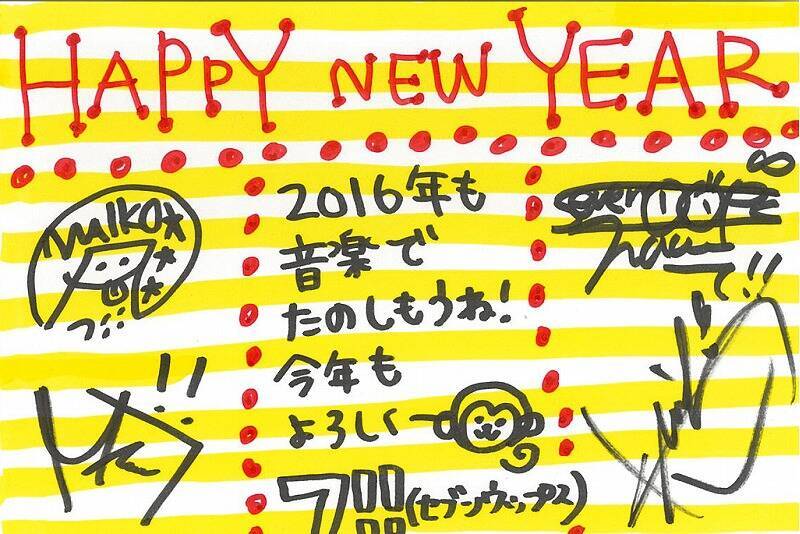 HAPPY NEW YEAR
maiko
2016年も
音楽で
たのしもうね!
今年も
よろしくー
7!!
(セブンウップス)